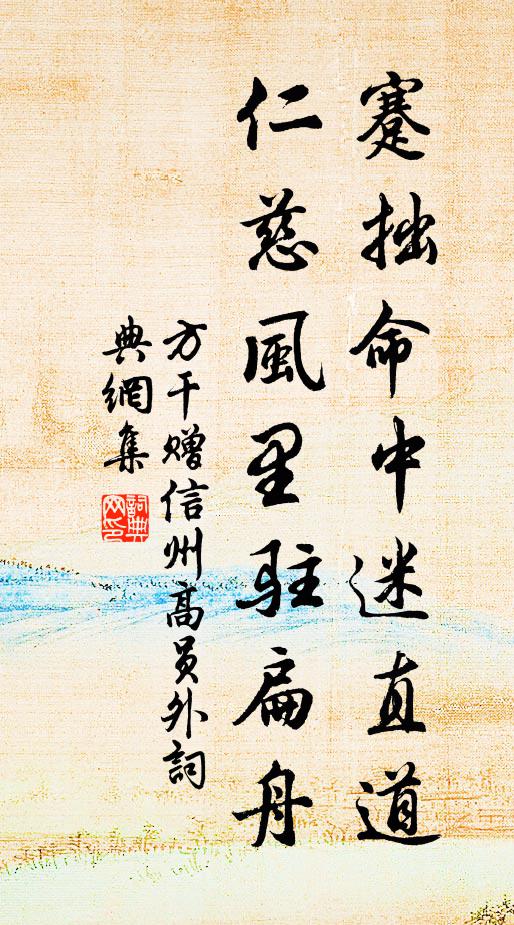 蹇拙命中迷直道
仁慈風里驻扁舟
方干赠信州高员外詞
典網集
詞典网印